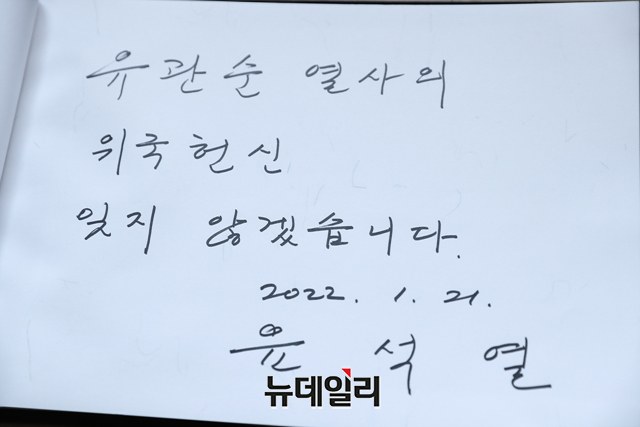 유관순 열사의
위국헌신
잊지 않겠습니다.
2022. 1. 21.
윤 석 열
뉴데일리